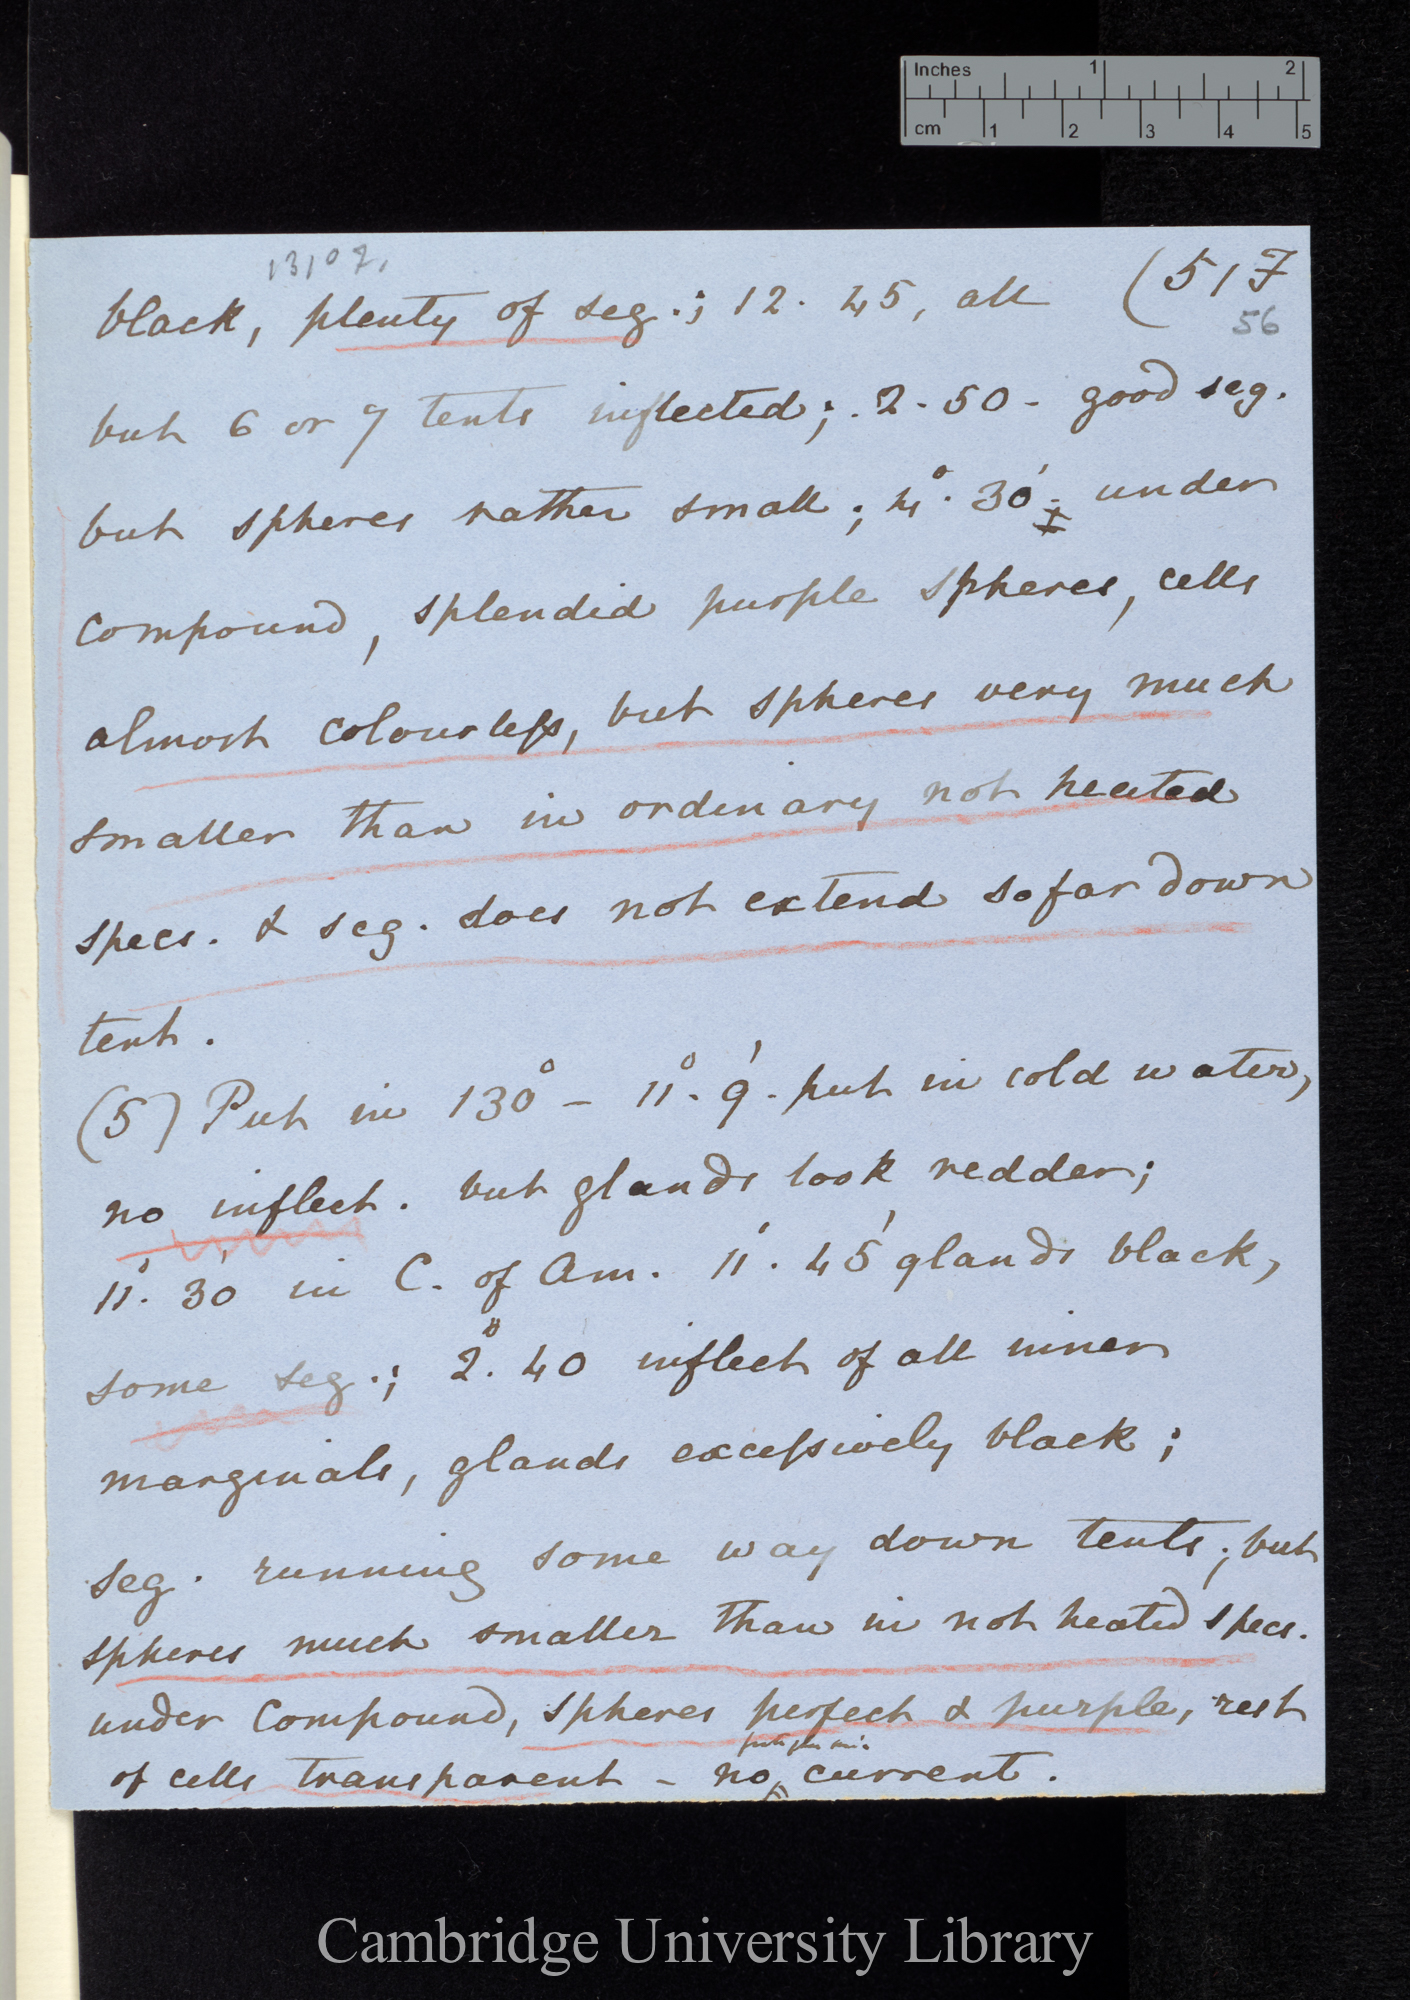 Inches 1 2
cm 1 2 3 4 5
(51 F
56
black, plenty of seg.; 12. 45, all
but 6 or 7 tents inflected; 2. 50 - good seg.
but spheres rather small; 4°. 30'; under
compound, splendid purple spheres, cells
almost colourless, but spheres very much
smaller than in ordinary not heated
specs. & seg. does not extend so far down
tent.
(5) Put in 130° - 11°. 9'. put in cold water,
no inflect. but glands look redder;
11°. 30' in C. of Am. 11°. 45' glands black,
some seg.; 2°. 40 inflect of all inner
marginals, glands excessively black;
seg. running some way down tents; but
spheres much smaller than in not heated specs.
under Compound, spheres perfect & purple, rest
of cells transparent - no current.
Cambridge University Library